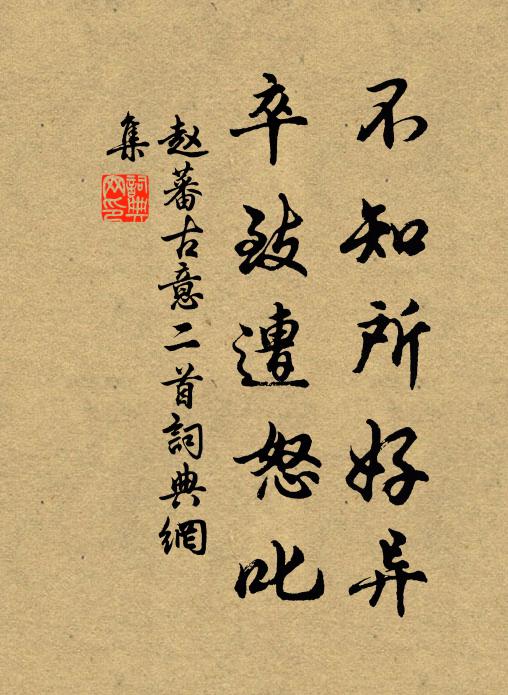 不知所好异
卒致遭怒叱
赵蕃古意二首詞典網
集
詞典
网印